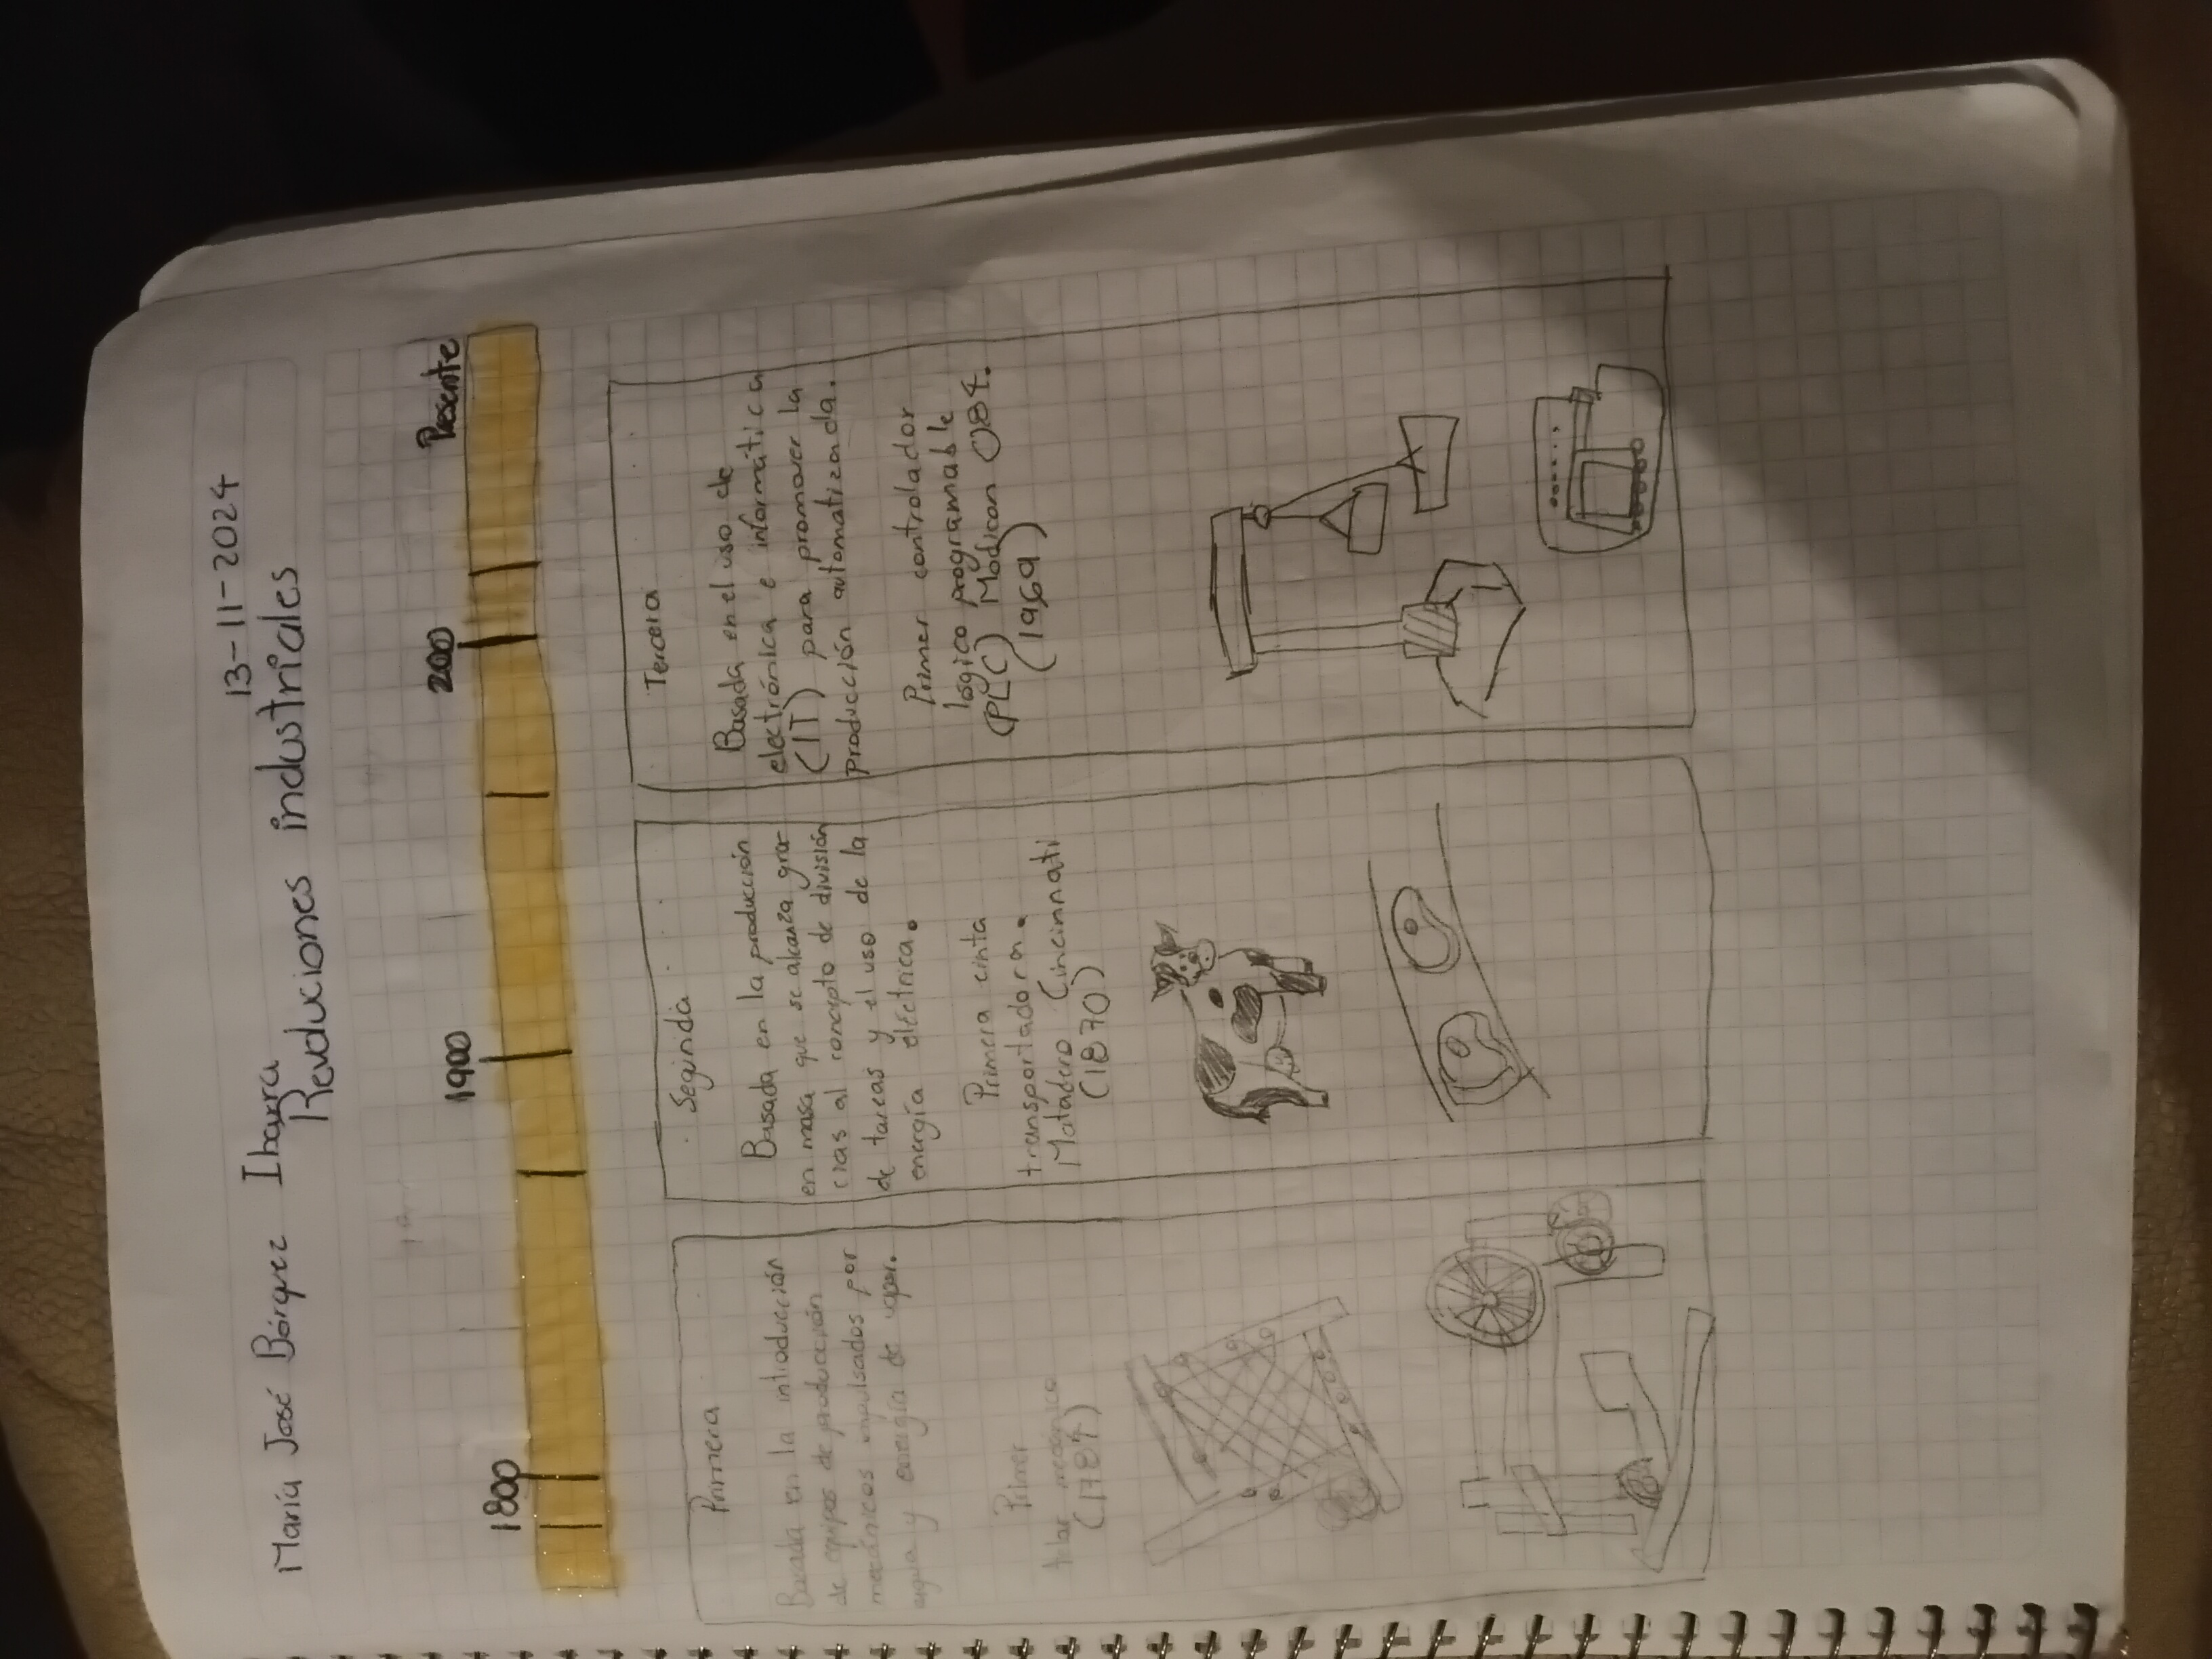 13-11-2024
María José Bórquez Ibarra
Revoluciones industriales
1800
1900
2000
Presente
Primera
Basada en la introducción
de equipos de producción
mecánicos impulsados por
agua y energía de vapor.
Primer
telar mecánico
(1784)
Segunda
Basada en la producción
en masa que se alcanza gra-
cias al concepto de división
de tareas y el uso de la
energía eléctrica.
Primera cinta
transportadora.
Matadero Cincinnati
(1870)
Tercera
Basada en el uso de
electrónica e informática
(IT) para promover la
Producción automatizada.
Primer controlador
lógico programable
(PLC) Modicon 084.
(1969)